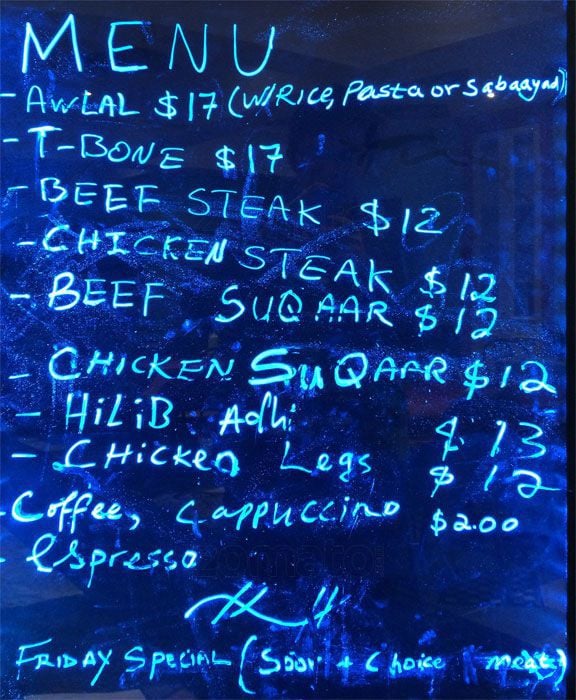 MENU
- AWLAL $17 (W/RICE, Pasta or Sabaayad)
- T-BONE $17
- BEEF STEAK $12
- CHICKEN STEAK $12
- BEEF SUQAAR $12
- CHICKEN SUQAAR $12
- HiLiB Adhi $13
- CHicken Legs $12
- Coffee, Cappuccino $2.00
- espresso
zomato
FRiDAY SPECiAL (Soor + Choice meat)